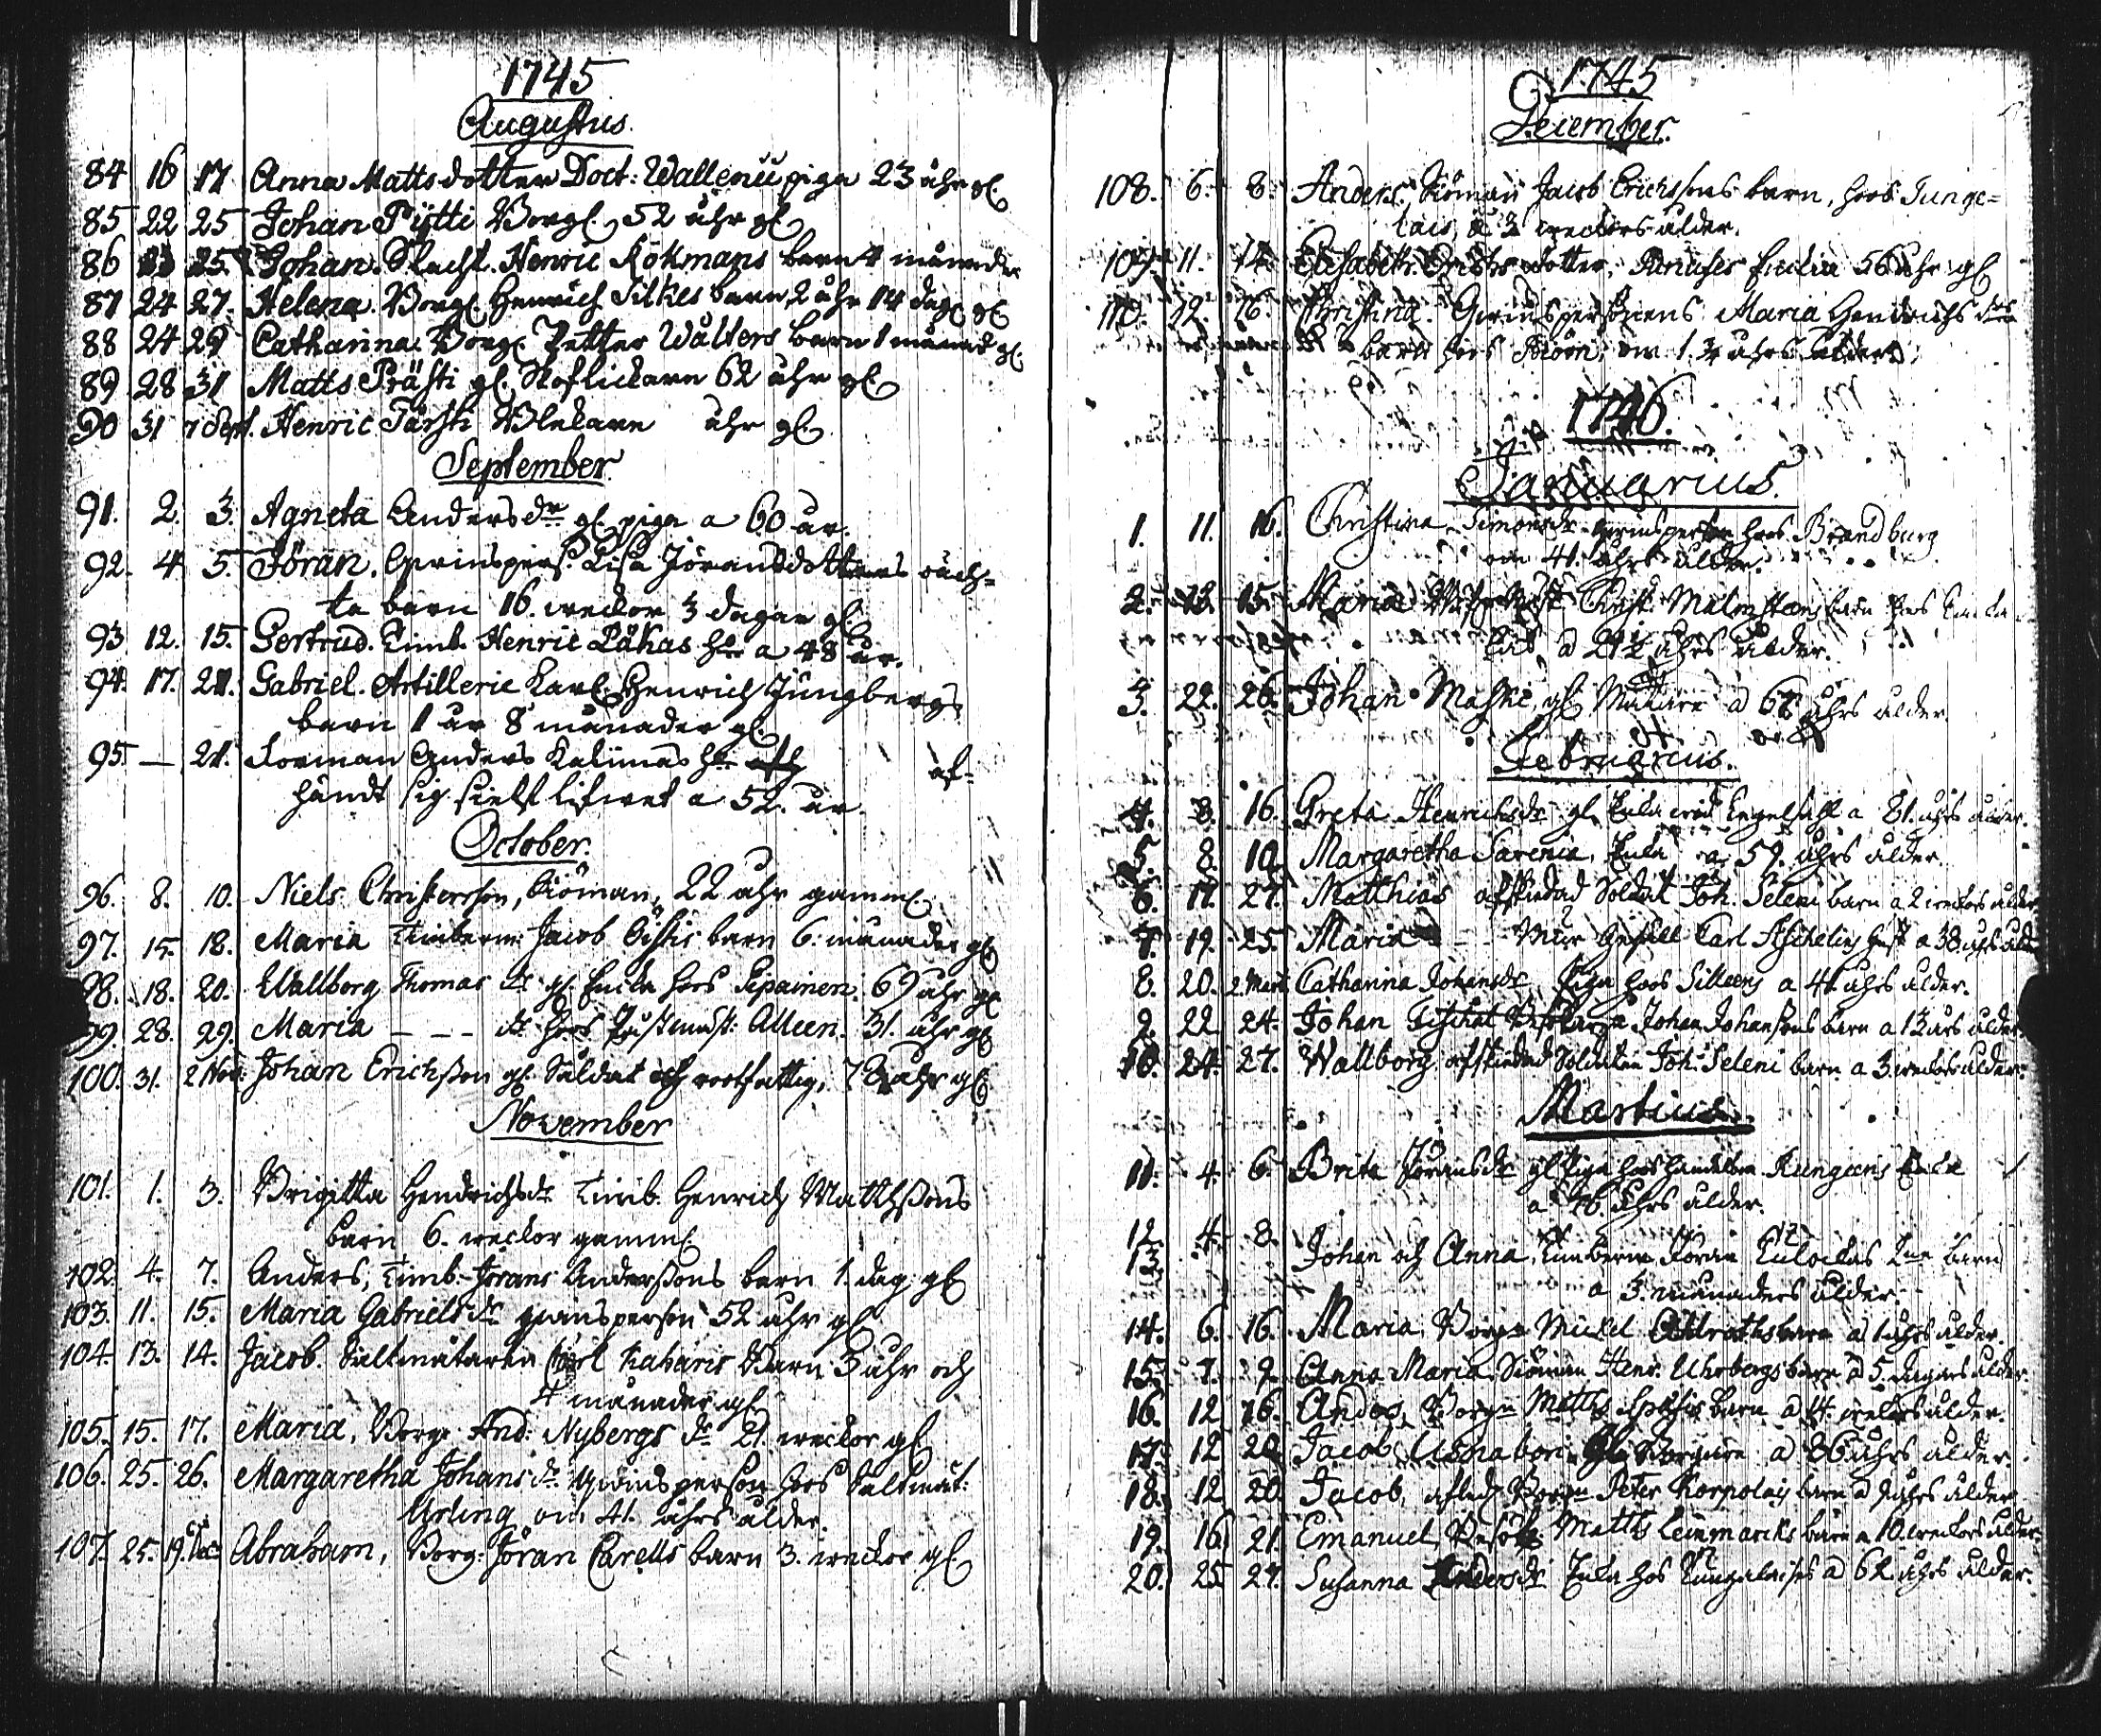 1745
Augustus.
84 16 17 Anna Matts dotter Doct: Wallenii piga 23 åhr gl.
85 22 25 Johan Pijtti Borgl. 52 åhr gl.
86 23 25 Johan. Slacht. Henric Kökmans barn 4 månader
87 24 27. Helena. Borgl. Henrich Silkes barn 2 åhr 14 dag. gl.
88 24 29 Catharina. Borg. Petter Wålters barn 1 månad gl.
89 28 31 Matts Prästi gl. 62 åhr gl.
90 31 7 Sept. Henric Tarsti åhr gl.
September.
91. 2. 3. Agneta Anders dr gl. piga a 60 år.
92. 4 5. Jöran. Qvinspers. Lisa Jöransdotters oäch=
ta barn 16. weckor 3 dagar gl.
93 12. 15. Gertrud. Timb. Henric Påkas hu a 48 år.
94. 17. 21. Gabriel. Artillerie Karl. Henrich Jungbergs
barn 1 år 8 månader gl.
95. — 21. Forman Anders Kalimas hu af=
händt sig sielf lifwet a 52. år.
October.
96. 8. 10. Niels Christersson, Siöman, 22 åhr gamml.
97. 15. 18. Maria Timberm: Jacob barn 6. månader gl.
98. 18. 20. Wallborg Thomas dr gl. Encka hos Pipainen. 69 åhr gl.
99. 28. 29. Maria – – – dr hos Alleen. 31. åhr gl.
100. 31. 2 Nov: Johan Erichsson gl. Saldat och rootfattig, 78 åhr gl.
November
101. 1. 3. Brigitta Hendrichs dr Timb. Henrich Matthssons
barn 6. weckor gamml.
102. 4. 7. Anders, Timb. Jörans Anderssons barn 1. dag gl.
103. 11. 15. Maria Gabriels dr qwinsperson 52 åhr gl.
104. 13. 14. Jacob. Saltmätaren Carl Kaharis Barn 3 åhr och
4 månader gl.
105. 15. 17. Maria, Borg. And: Nybergs dr 21. weckor gl.
106. 25. 26. Margaretha Johans dr qwinsperson hos Saltmät:
Urling om 41. åhrs ålder.
107. 25. 19. Dec: Abraham, Borg: Jöran Carells barn 3. weckor gl.
1745
December.
108. 6. 8. Anders, Siöman Jacob Erichssons barn, hos Junge=
lais, a 3 weckors ålder.
109. 11. 14. Elisabeth Erichs dotter, Encka 56 åhr gl.
110. 12. 16. Christina. Qwinspersonens Maria Hendrichs
barn hos Biörn, om 1. 3/4 åhrs ålder.
1746.
Januarius.
1. 11. 16. Christina Simons dr qwinsperson hos Brandburg
om 41. åhrs ålder.
2. 13. 15. Maria Christ. Malmsteens barn hos
a 21 1/2 åhrs ålder.
3. 22. 26. Johan Maski, gl. a åhrs ålder.
Februarius.
4. 8. 16. Greta Henrichs dr gl. Enka wid Engelsahl a 81. åhrs ålder.
5. 8 10. Margaretha Sarenia, Enka a 59. åhrs ålder.
6. 17. 27. Matthias afskedad Soldat Joh. Seleni barn a 2 weckors ålder
7. 19. 25. Maria – – Mur Gesäll Carl a 38 åhrs ålder
8. 20. 2. Mart. Catharina Johans dr Piga hos Silleens a 41 åhrs ålder.
9. 22 24. Johan Johan Johanssons barn a 13 åhrs ålder.
10. 24. 27. Wallborg afskedad Soldaten Joh: Seleni barn a 3. weckors ålder.
Martius.
11. 4. 6. Brita Jörans dr gl. Piga hos Handelsm Kungeens Encka
a 46 åhrs ålder.
12. 4. 8.
13. Johan och Anna, Timberm Jöran barn
a 3. månaders ålder.
14. 6. 16. Maria, Borg. Mickel barn a 1 åhrs ålder.
15. 7. 9. Anna Maria, Siöman Henr. Uhrbergs barn a 5. dagars ålder.
16. 12. 16. Anders, Borgn Matths barn a 14. weckors ålder.
17. 12 20 Jacob, Usnabori gl. Borgare a 86 åhrs ålder.
18. 12. 20. Jacob, afled. Borgn Peter Korpolais barn a åhrs ålder
19. 16. 21. Emanuel, Matths Leinmarcks barn a 10. weckors ålder.
20. 25 27. Susanna Anders dr Enka hos Kungalaises a 62. åhrs ålder.